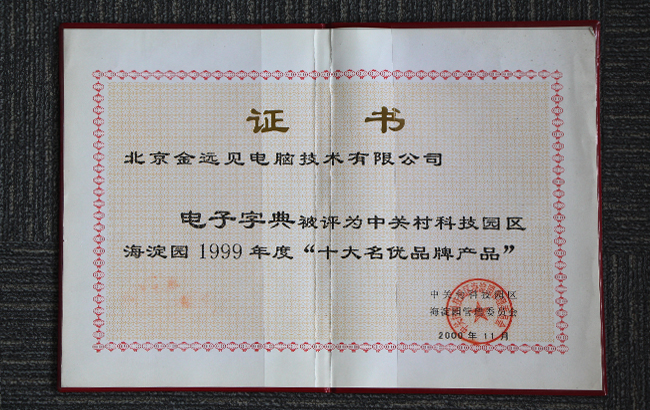 证 书
北京金远见电脑技术有限公司
电子字典被评为中关村科技园区
海淀园1999年度“十大名优品牌产品”
中关村科技园区
海淀园管理委员会
2000年11月